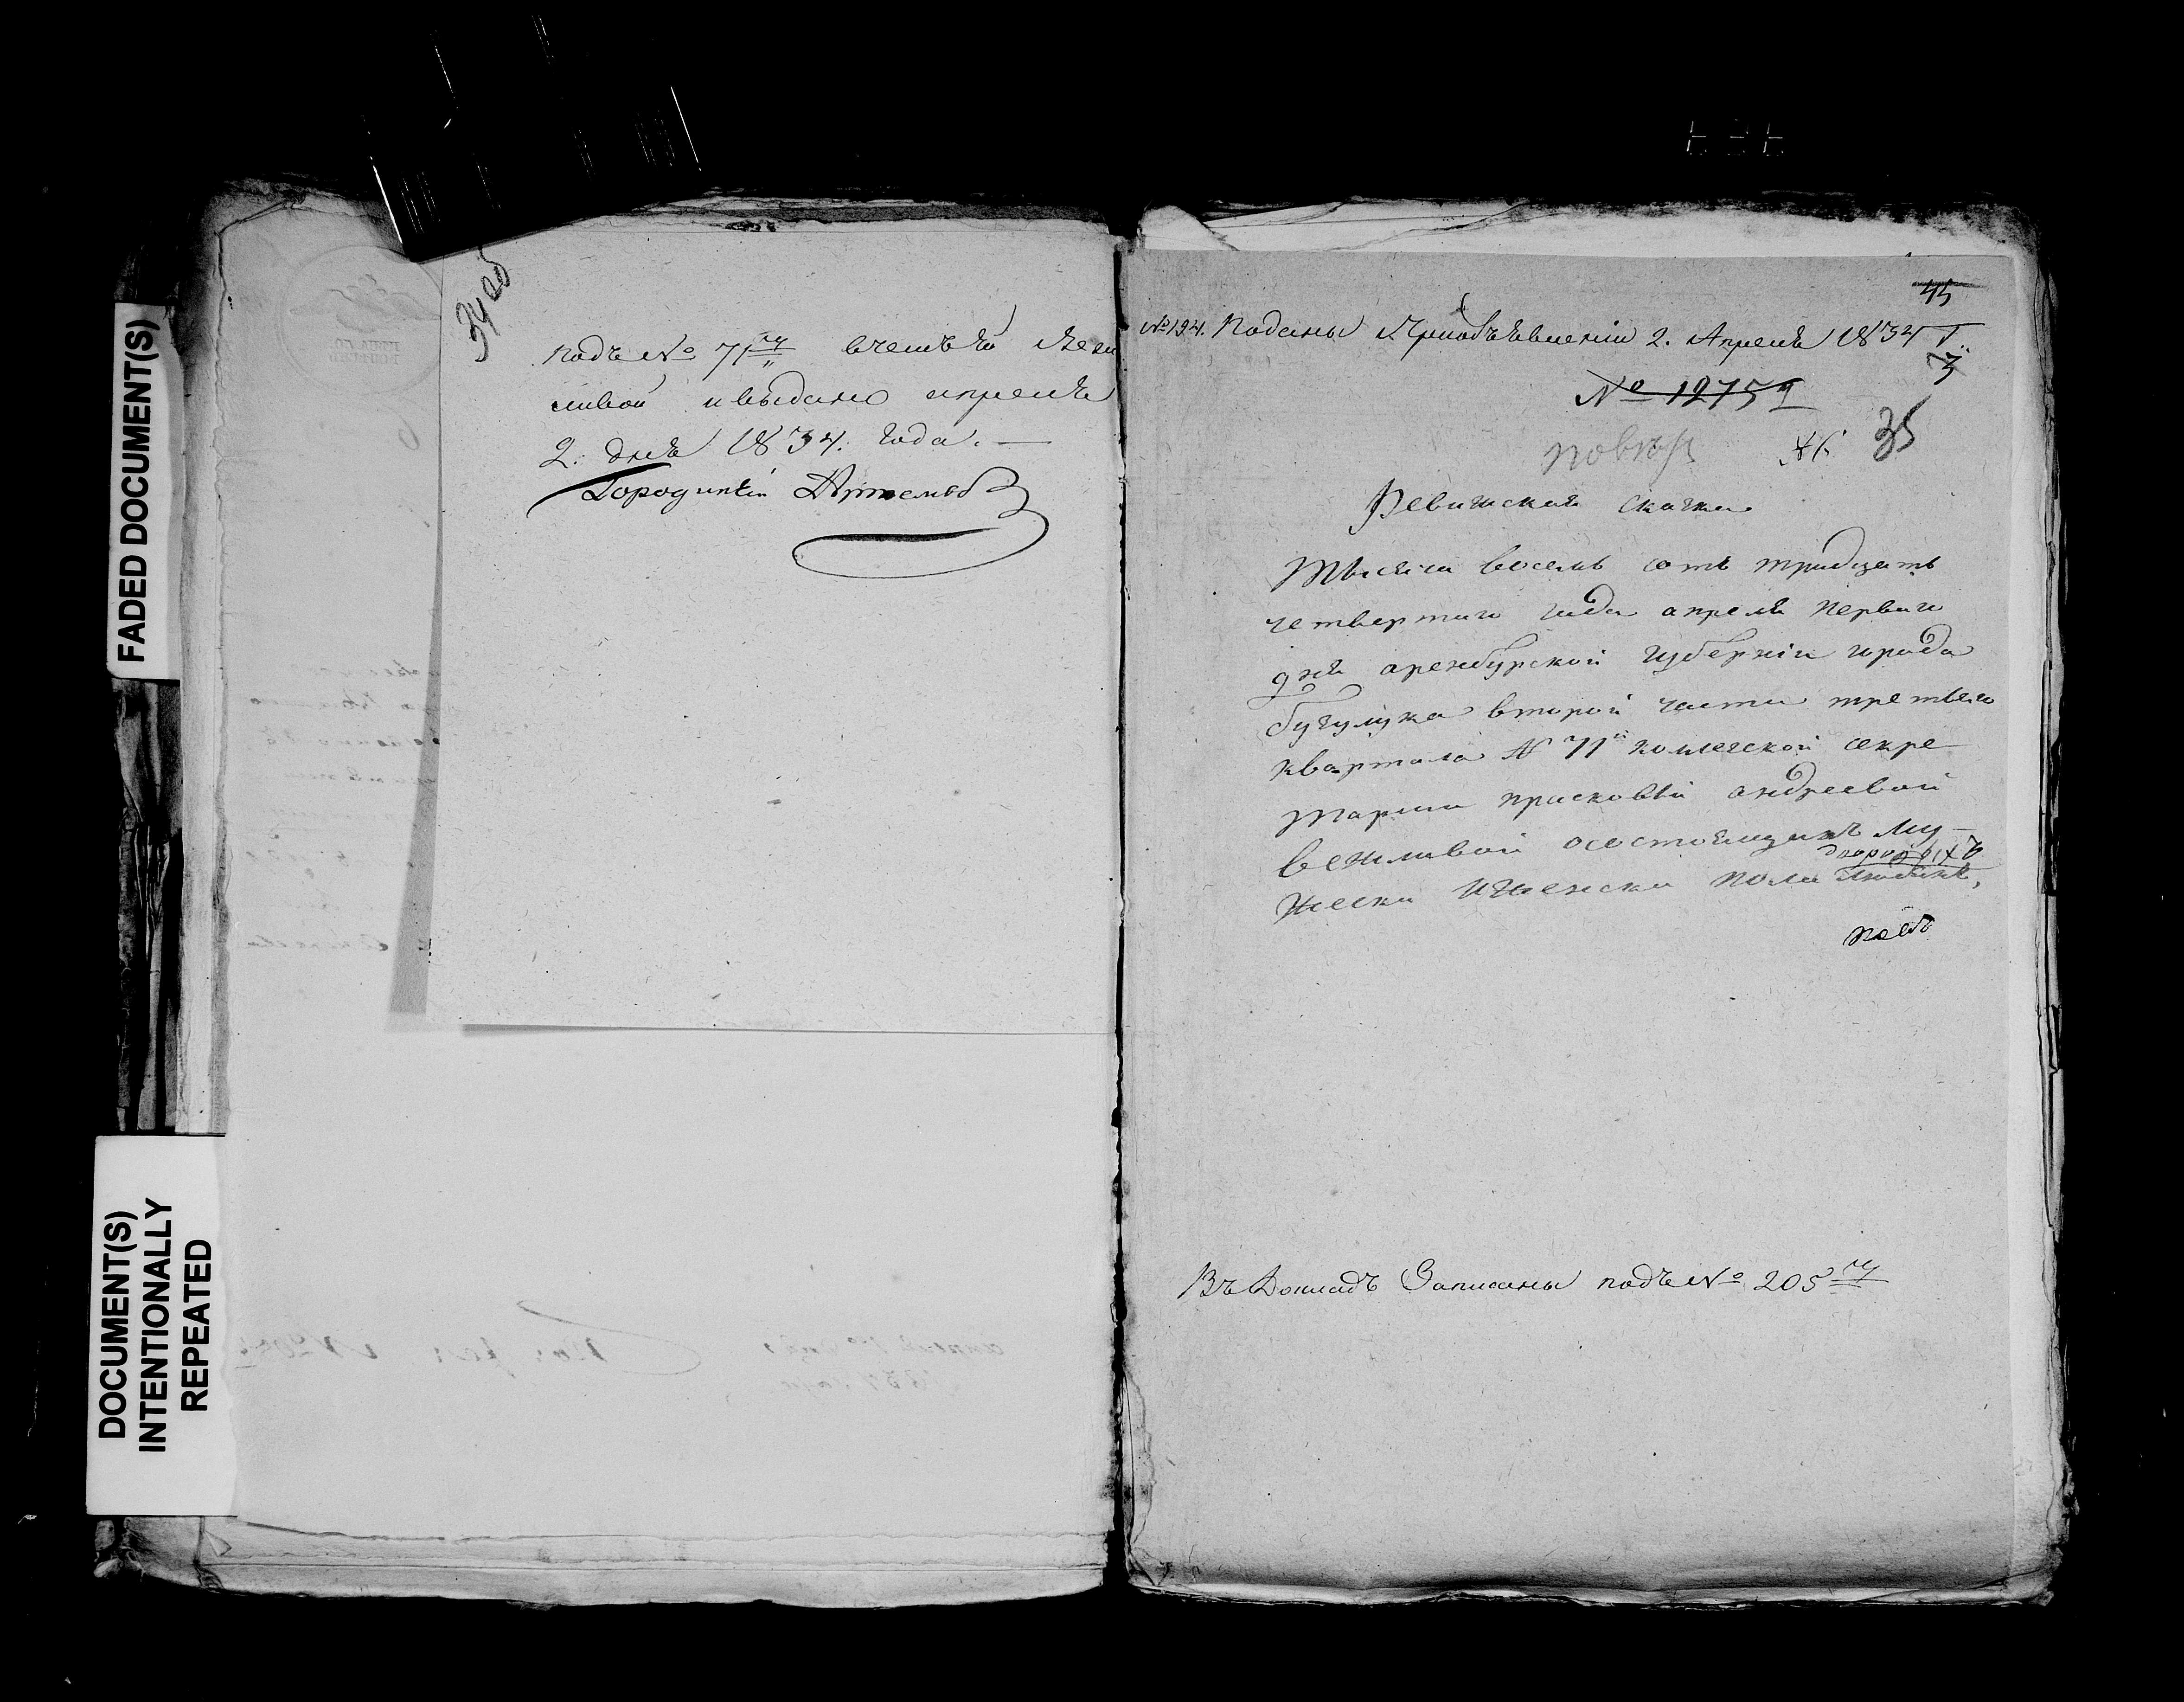 FADED DOCUMENT(S)
DOCUMENT(S)
INTENTIONALLY
REPEATED
34 об
подъ № 71му
сливой и выдано апреля
2. дня 1834. года.
Городничій Артемьев
45
№ 194. Поданы при объявленіи 2. Апреля 1834 г.
3
№ 12751
35
Ревижская скаска
Тысяча восемь сотъ тридцать
четвертаго года апреля перваго
дня аренбурской губерніи города
бугулука второй части третьяго
квартала № 71 коллежской секре
тарши прасковьи андреевой
вежливой осостоящихъ му
дворовыхъ
жеска иженска пола людяхъ,
Въ Докладъ Записаны подъ № 205му